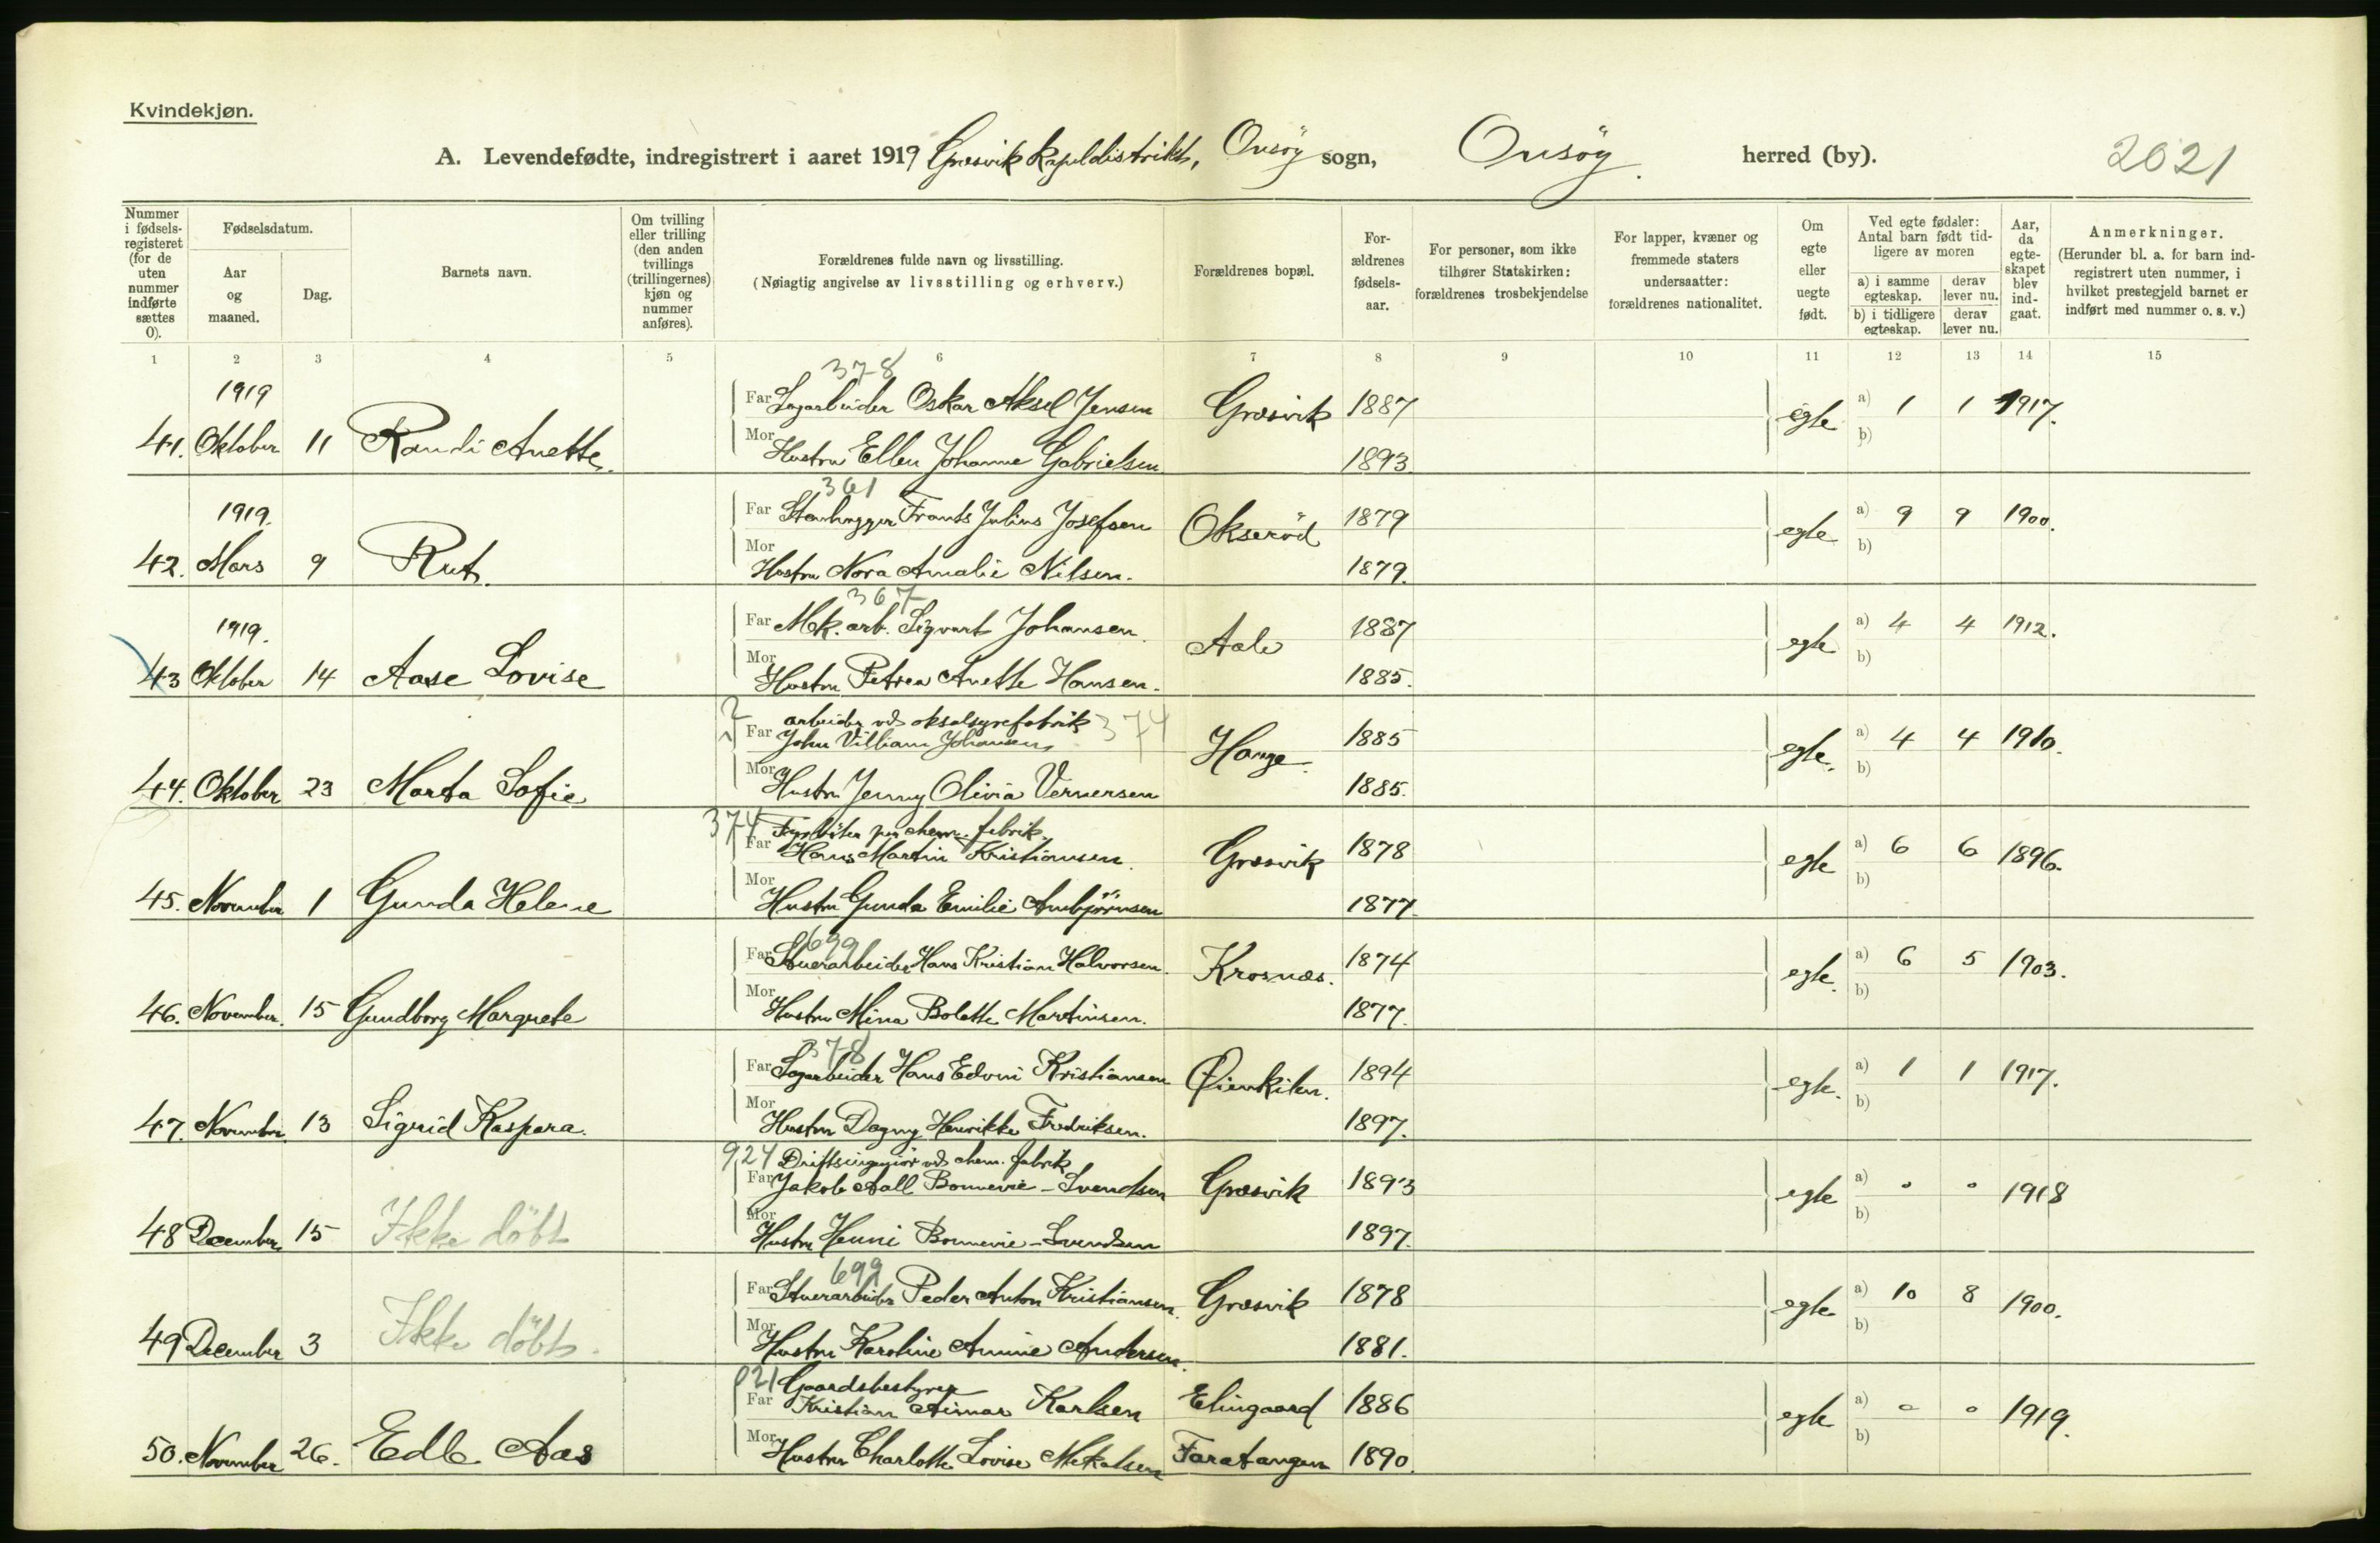 Kvindekjøn.
A. Levendefødte, indregistrert i aaret 1919 Græsvik kapeldistrikt, Onsöy sogn, Onsöy herred (by). 2021
Nummer i fødselsregisteret (for de uten nummer indførte sættes 0).
Fødselsdatum.
Aar og maaned.
Dag.
Barnets navn.
Om tvilling eller trilling (den anden tvillings (trillingernes) kjøn og nummer anføres).
Forældrenes fulde navn og livsstilling.
(Nøiagtig angivelse av livsstilling og erhverv.)
Forældrenes bopæl.
Forældrenes fødselsaar.
For personer, som ikke tilhører Statskirken: forældrenes trosbekjendelse
For lapper, kvæner og fremmede staters undersaatter: forældrenes nationalitet.
Om egte eller uegte født.
Ved egte fødsler: Antal barn født tidligere av moren
a) i samme egteskap. derav lever nu.
b) i tidligere egteskap. derav lever nu.
Aar, da egteskapet blev indgaat.
Anmerkninger.
(Herunder bl. a. for barn indregistrert uten nummer, i hvilket prestegjeld barnet er indført med nummer o. s. v.)
1 2 3 4 5 6 7 8 9 10 11 12 13 14 15
378
1919 Far Sagarbeider Oskar Aksel Jensen Græsvik 1887 egte a) 1 1 1917.
41. Oktober 11 Randi Anette. Mor Hustru Ellen Johanne Gabrielsen 1893. b)
361
1919. Far Stenhugger Frants Julius Josefsen Okseröd 1879 egte a) 9 9 1900.
42. Mars 9 Rut. Mor Hustru Nora Amalie Nilsen. 1879. b)
367
1919. Far Mek. arb. Sigvart Johansen. Aale 1887 egte a) 4 4 1912.
43 Oktober 14 Aase Lovise Mor Hustru Petrea Anette Hansen. 1885. b)
? arbeider ved oksalsyrefabrik 374
Far John Villiam Johansen, Hauge. 1885 egte. a) 4 4 1910.
44. Oktober 23 Marta Sofie Mor Hustru Jenny Olivia Vernersen 1885. b)
374 Fyrböter på chem. fabrik.
Far Hans Martin Kristiansen. Græsvik 1878 egte a) 6 6 1896.
45. November 1 Gunda Helene Mor Hustru Gunda Emilie Arnbjörnsen 1877. b)
699
Far Stuerarbeider Hans Kristian Halvorsen. Krosnæs. 1874 egte. a) 6 5 1903.
46. November. 15 Gundborg Margrete Mor Hustru Mina Bolette Martinsen. 1877. b)
378
Far Sagarbeider Hans Edvin Kristiansen Øienkilen. 1894 egte. a) 1 1 1917.
47. November. 13 Sigrid Kaspara. Mor Hustru Dagny Henrikke Fredriksen. 1897. b)
924 Driftsingeniör ved chem. fabrik
Far Jakob Aall Bonnevie-Svendsen Græsvik 1893 egte a) " " 1918
48 December. 15 Ikke döbt Mor Hustru Henni Bonnevie-Svendsen 1897. b)
699
Far Stuerarbeider Peder Anton Kristiansen. Græsvik 1878 egte a) 10 8 1900.
49 December 3 Ikke döbt. Mor Hustru Karoline Amine Andersen. 1881. b)
021 Gaardsbestyrer
Far Kristian Aimar Karlsen Elingaard 1886 egte a) " " 1919.
50. November 26. Edle Aas Mor Hustru Charlotte Lovise Mekalsen Faratangen 1890. b)